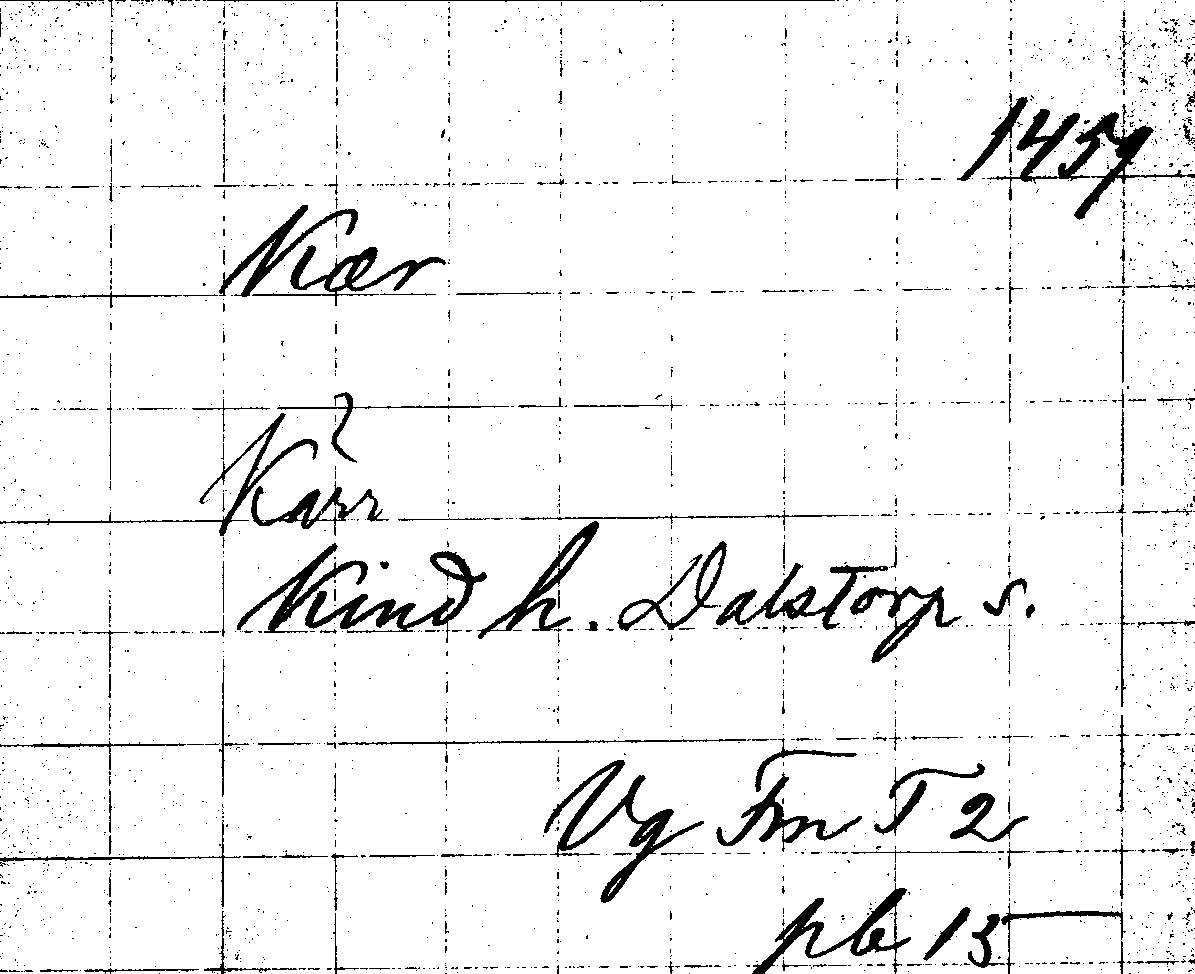 1459
Kær
?
Karr
Kind h. Dalstorp s.
Vg Fm T 2
pb 15